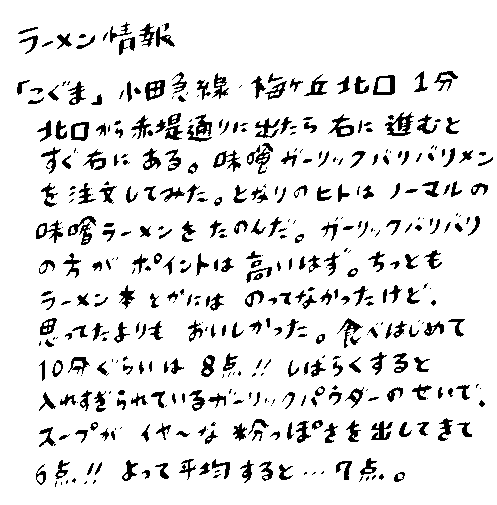 ラーメン情報
「こぐま」小田急線・梅ヶ丘北口1分
北口から赤堤通りに出たら右に進むと
すぐ右にある。味噌ガーリックバリバリメン
を注文してみた。となりのヒトはノーマルの
味噌ラーメンをたのんだ。ガーリックバリバリ
の方がポイントは高いはず。ちっとも
ラーメン本とかにはのってなかったけど、
思ってたよりもおいしかった。食べはじめて
10分ぐらいは8点!!しばらくすると
入れすぎられているガーリックパウダーのせいで、
スープがイヤ〜な粉っぽさを出してきて
6点!!よって平均すると…7点。